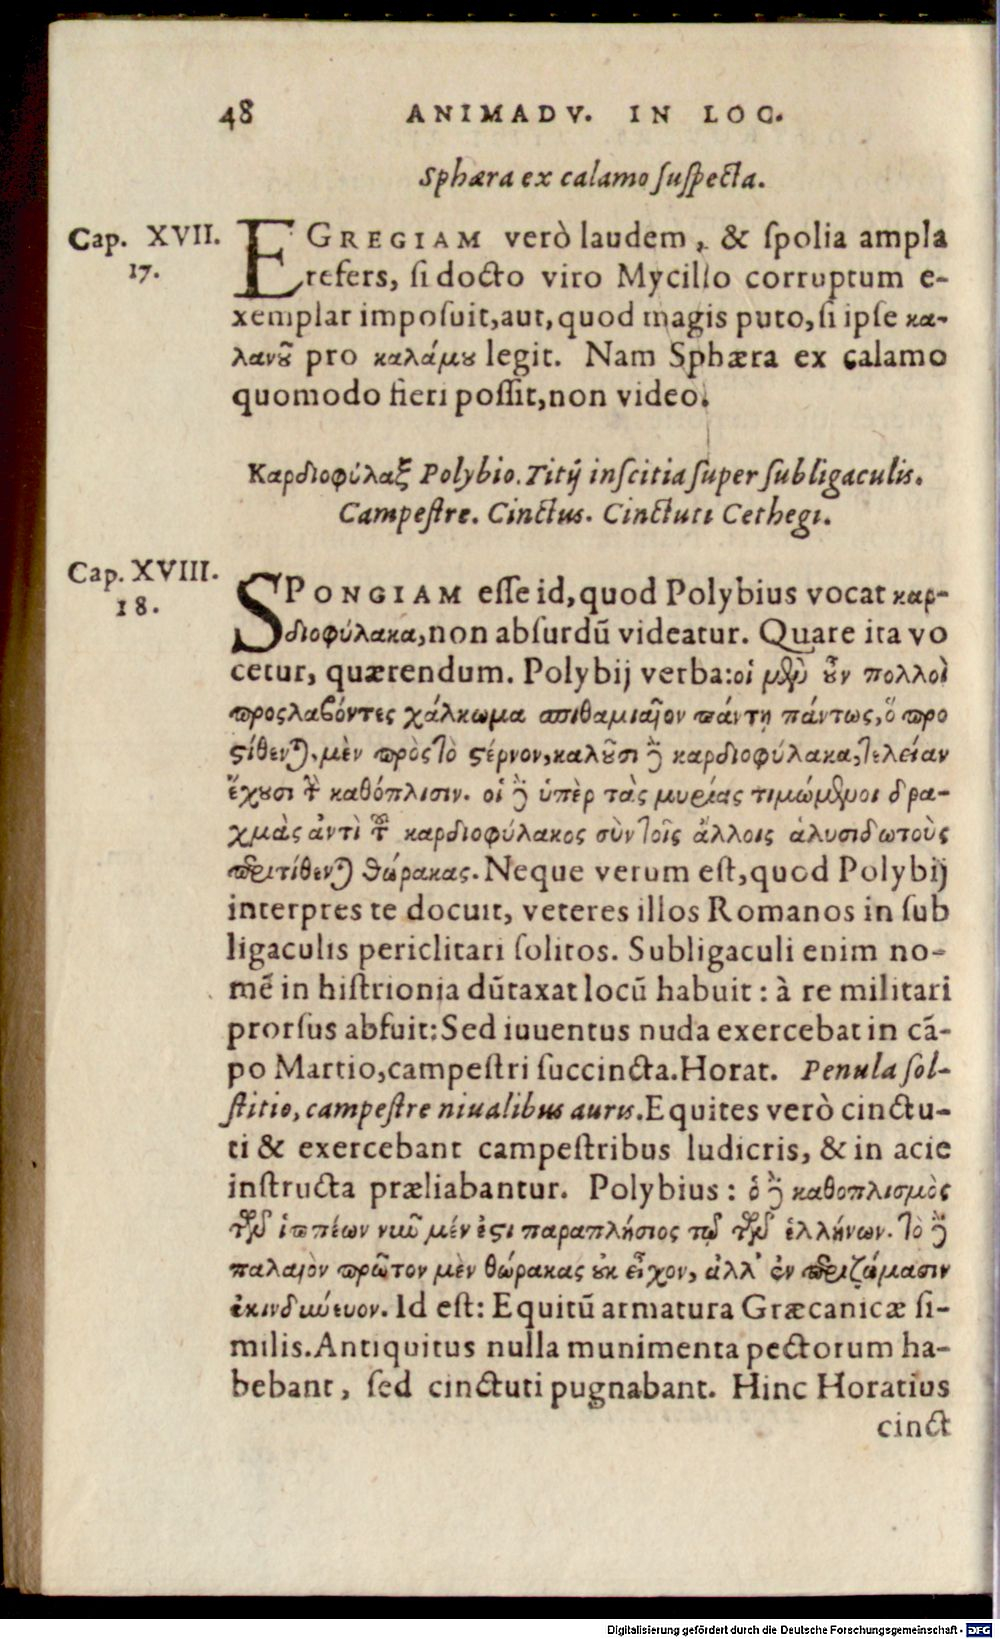 48 ANIMADV. IN LOC.
Sphæra ex calamo ſuſpecta.
Cap. XVII.
17.
EGREGIAM verò laudem, & ſpolia ampla
refers, ſi docto viro Mycillo corruptum e-
xemplar impoſuit, aut, quod magis puto, ſi ipſe κα-
λανȣ͂ pro καλάμȣ legit. Nam Sphæra ex calamo
quomodo fieri poſſit, non video.
Καρδιοφύλαξ Polybio. Titij inſcitia ſuper ſubligaculis.
Campeſtre. Cinctus. Cinctuti Cethegi.
Cap. XVIII.
18.
SPONGIAM eſſe id, quod Polybius vocat καρ-
διοφύλακα, non abſurdū videatur. Quare ita vo
cetur, quærendum. Polybij verba: οἱ μὲν ȣ̓͂ν πολλοὶ
προςλαβόντες χάλκωμα σπιθαμιαῖον πάντη πάντως, ὅ προ
ςίθεν). μὲν πρὸς τὸ ςέρνον, καλȣ͂σι ἢ καρδιοφύλακα, τελείαν
ἔχȣσι τ̃ καθόπλισιν. οἱ ἢ ὑπὲρ τὰς μυρίας τιμώμενοι δρα-
χμὰς ἀντὶ τȣ͂ καρδιοφύλακος σὺν τοῖς ἄλλοις ἁλυσιδωτοὺς
περιτίθεν) θώρακας. Neque verum eſt, quod Polybij
interpres te docuit, veteres illos Romanos in ſub
ligaculis periclitari ſolitos. Subligaculi enim no-
mē in hiſtrionia dūtaxat locū habuit: à re militari
prorſus abfuit: Sed iuuentus nuda exercebat in cā-
po Martio, campeſtri ſuccincta. Horat. Penula ſol-
ſtitio, campeſtre niualibus auris. Equites verò cinctu-
ti & exercebant campeſtribus ludicris, & in acie
inſtructa præliabantur. Polybius: ὁ ἢ καθοπλισμὸς
τῶν ἱππέων νῦν μέν ἐςι παραπλήσιος τῷ τῶν ἑλλήνων. τὸ ἢ
παλαιὸν πρῶτον μὲν θώρακας ȣκ εἶχον, ἀλλ᾽ ἐν περιζώμασιν
ἐκινδιώευον. Id eſt: Equitū armatura Græcanicæ ſi-
milis. Antiquitus nulla munimenta pectorum ha-
bebant, ſed cinctuti pugnabant. Hinc Horatius
cinct
Digitalisierung gefördert durch die Deutsche Forschungsgemeinschaft - DFG